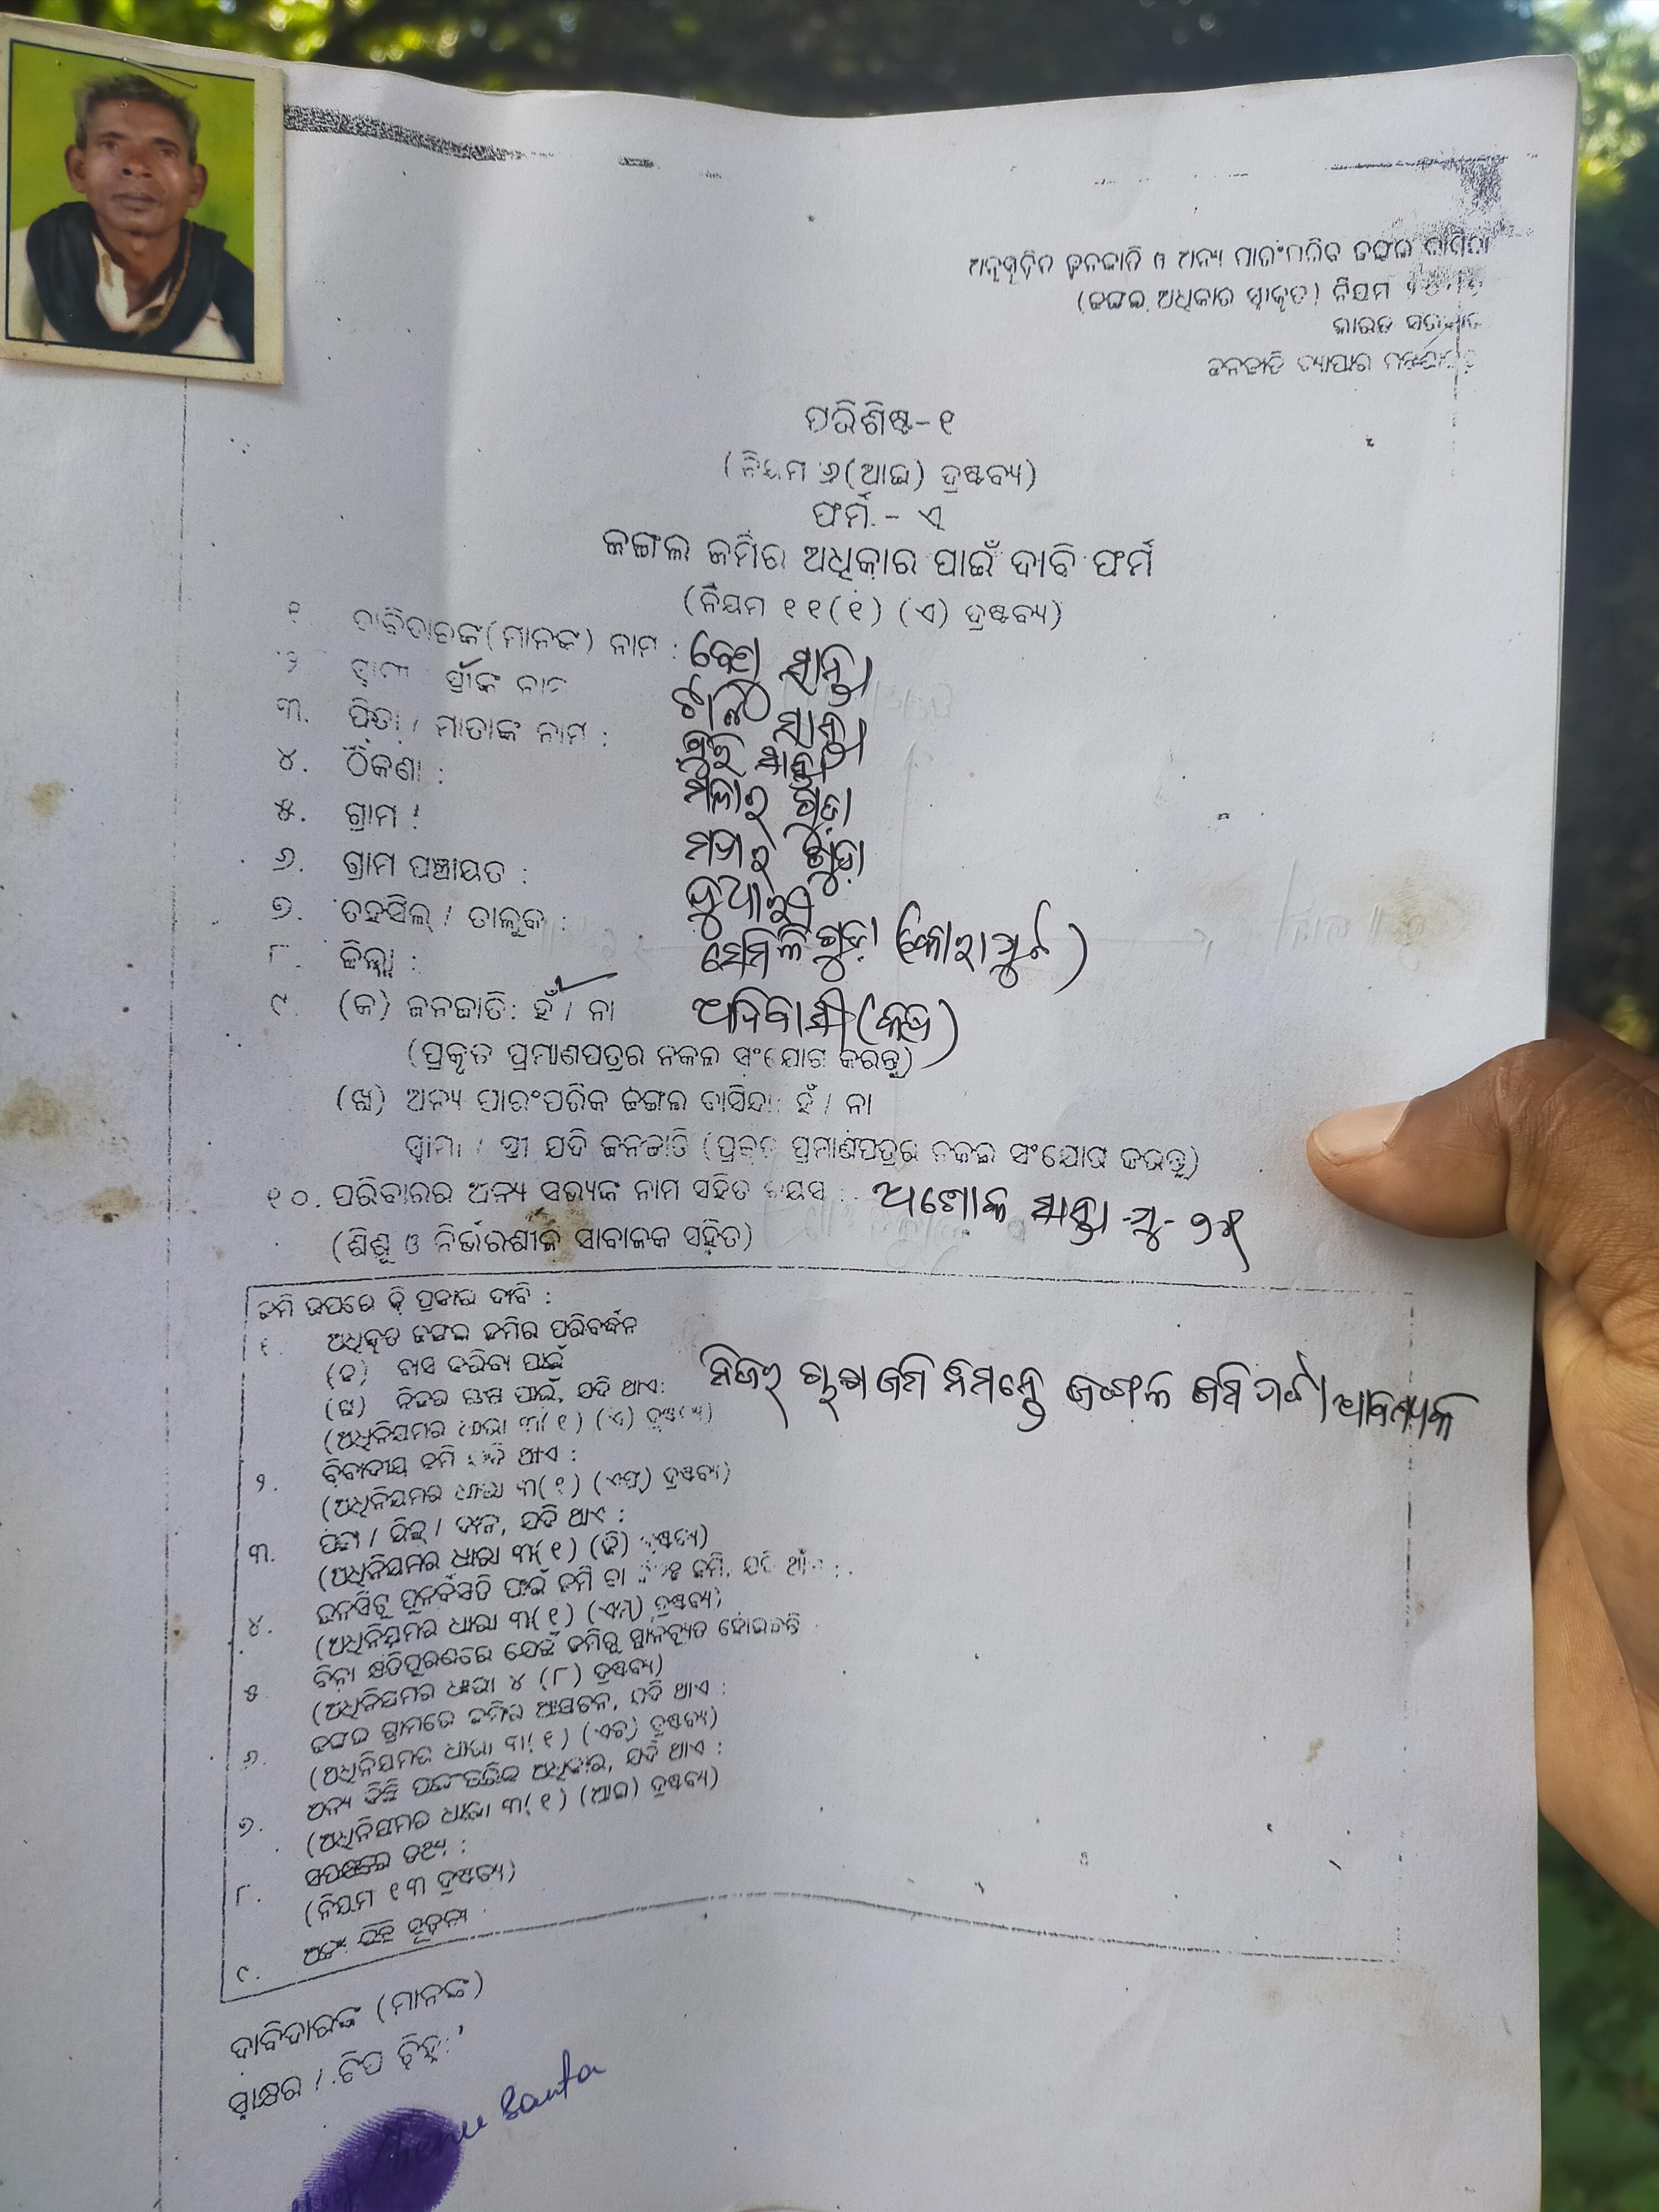 ଅନୁସୂଚିତ ଜନଜାତି ଓ ଅନ୍ୟ ପାରଂପରିକ ଜଙ୍ଗଲ ବାସିନ୍ଦା
(ଜଙ୍ଗଲ ଅଧିକାର ସ୍ୱୀକୃତ) ନିୟମ
ଭାରତ ସରକାର
ଜନଜାତି ବ୍ୟାପାର ମନ୍ତ୍ରଣାଳୟ
ପରିଶିଷ୍ଟ-୧
(ନିୟମ ୬(ଆଇ) ଦ୍ରଷ୍ଟବ୍ୟ)
ଫର୍ମ - ଏ
ଜଙ୍ଗଲ ଜମିର ଅଧିକାର ପାଇଁ ଦାବି ଫର୍ମ
(ନିୟମ ୧୧(୧) (ଏ) ଦ୍ରଷ୍ଟବ୍ୟ)
୧ ଦାବିଦାରଙ୍କ(ମାନଙ୍କ) ନାମ : ସାନ୍ତା
୨ ସ୍ୱାମୀ ସ୍ତ୍ରୀଙ୍କ ନାମ ସାନ୍ତା
୩. ପିତା / ମାତାଙ୍କ ନାମ : ସାନ୍ତା
୪. ଠିକଣା : ଗୁଡ଼ା
୫. ଗ୍ରାମ : ଗୁଡ଼ା
୬. ଗ୍ରାମ ପଞ୍ଚାୟତ :
୭. ତହସିଲ୍ / ତାଲୁକ : ସେମିଳିଗୁଡ଼ା (କୋରାପୁଟ)
୮. ଜିଲ୍ଲା :
୯ (କ) ଜନଜାତି: ହଁ / ନା ଆଦିବାସୀ (କନ୍ଧ)
(ପ୍ରକୃତ ପ୍ରମାଣପତ୍ରର ନକଲ ସଂଯୋଗ କରନ୍ତୁ)
(ଖ) ଅନ୍ୟ ପାରଂପରିକ ଜଙ୍ଗଲ ବାସିନ୍ଦା: ହଁ / ନା
ସ୍ୱାମୀ / ସ୍ତ୍ରୀ ଯଦି ଜନଜାତି (ପ୍ରକୃତ ପ୍ରମାଣପତ୍ରର ନକଲ ସଂଯୋଗ କରନ୍ତୁ)
୧୦. ପରିବାରର ଅନ୍ୟ ସଭ୍ୟଙ୍କ ନାମ ସହିତ ବୟସ : ଅଶୋକ ସାନ୍ତା -ପୁ-
(ଶିଶୁ ଓ ନିର୍ଭରଶୀଳ ସାବାଳକ ସହିତ)
ଜମି ଉପରେ କି ପ୍ରକାର ଦାବି :
୧. ଅଧିକୃତ ଜଙ୍ଗଲ ଜମିର ପରିବର୍ଦ୍ଧନ
(କ) ବାସ କରିବା ପାଇଁ
(ଖ) ନିଜର ଚାଷ ପାଇଁ, ଯଦି ଥାଏ: ନିଜର ଚାଷ ଜମି ନିମନ୍ତେ ଜଙ୍ଗଲ ଜମି ପଟ୍ଟା ଆବଶ୍ୟକ
(ଅଧିନିୟମର ଧାରା ୩(୧) (ଏ) ଦ୍ରଷ୍ଟବ୍ୟ)
୨. ବିବାଦୀୟ ଜମି ଯଦି ଥାଏ :
(ଅଧିନିୟମର ଧାରା ୩(୧) (ଏଫ୍) ଦ୍ରଷ୍ଟବ୍ୟ)
୩. ପଟ୍ଟା / ଲିଜ୍ / ଦାନ, ଯଦି ଥାଏ :
(ଅଧିନିୟମର ଧାରା ୩(୧) (ଜି) ଦ୍ରଷ୍ଟବ୍ୟ)
୪. ଇନସିଟୁ ପୁନର୍ବସତି ପାଇଁ ଜମି ବା ଜମି, ଯଦି ଥାଏ :
(ଅଧିନିୟମର ଧାରା ୩(୧) (ଏମ୍) ଦ୍ରଷ୍ଟବ୍ୟ)
୫ ବିନା କ୍ଷତିପୂରଣରେ ଯେଉଁ ଜମିରୁ ସ୍ଥାନଚ୍ୟୁତ ହୋଇଛନ୍ତି
(ଅଧିନିୟମର ଧାରା ୪ (୮) ଦ୍ରଷ୍ଟବ୍ୟ)
୬. ଜଙ୍ଗଲ ଗ୍ରାମରେ ଜମିର ଆୟତନ, ଯଦି ଥାଏ :
(ଅଧିନିୟମର ଧାରା ୩(୧) (ଏଚ୍) ଦ୍ରଷ୍ଟବ୍ୟ)
୭. ଅନ୍ୟ କିଛି ପାରଂପରିକ ଅଧିକାର, ଯଦି ଥାଏ :
(ଅଧିନିୟମର ଧାରା ୩(୧) (ଆଇ) ଦ୍ରଷ୍ଟବ୍ୟ)
୮. ସପକ୍ଷରେ ତଥ୍ୟ :
(ନିୟମ ୧୩ ଦ୍ରଷ୍ଟବ୍ୟ)
୯. ଅନ୍ୟ କିଛି ସୂଚନା
ଦାବିଦାରଙ୍କ (ମାନଙ୍କ)
ସ୍ୱାକ୍ଷର / ଟିପ ଚିହ୍ନ:
Santa